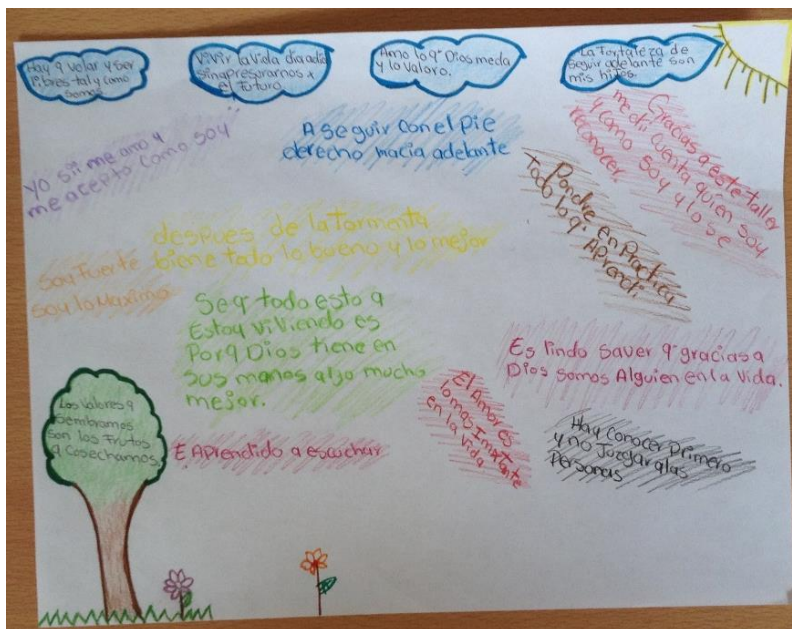 Hay q volar y ser
libres tal y como
somos
Vivir la Vida dia a dia
sin apresurarnos x
el futuro
Amo lo q' Dios me da
y lo valoro.
La Fortaleza de
Seguir adelante son
mis hijos.
Yo sii me amo y
me acepto como soy
A seguir con el pie
derecho hacia adelante
Gracias a este taller
me di cuenta quien soy
y como soy y lo se
reconocer.
Pondre en Practica
todo lo q' APrendi.
despues de la tormenta
biene todo lo bueno y lo mejor
Soy Fuerte
Soy lo Maximo
Se q' todo esto q
Estoy viviendo es
Porq Dios tiene en
sus manos algo mucho
mejor.
Es lindo saver q' gracias a
Dios somos Alguien en la Vida.
El Amor es
lo mas Imxtante
en la vida
Hay Conocer Primero
y no Juzgar a las
Personas
Los Valores q
Sembramos
son los Frutos
q Cosechamos.
E APrendido a escuchar